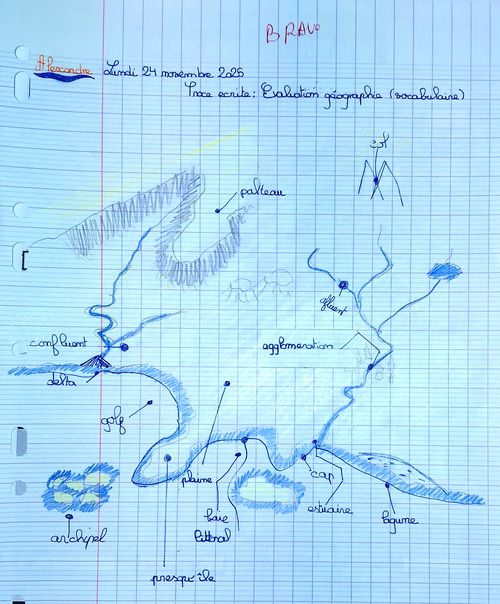 BRAVO
Alexandre Lundi 24 novembre 2025
Trace ecrite: Evaluation géographie (vocabulaire)
col
palteau
afluent
confluent
agglomeration
delta
golf
plaine
cap
baie
estuaire
littoral
lagune
archipel
presqu'île